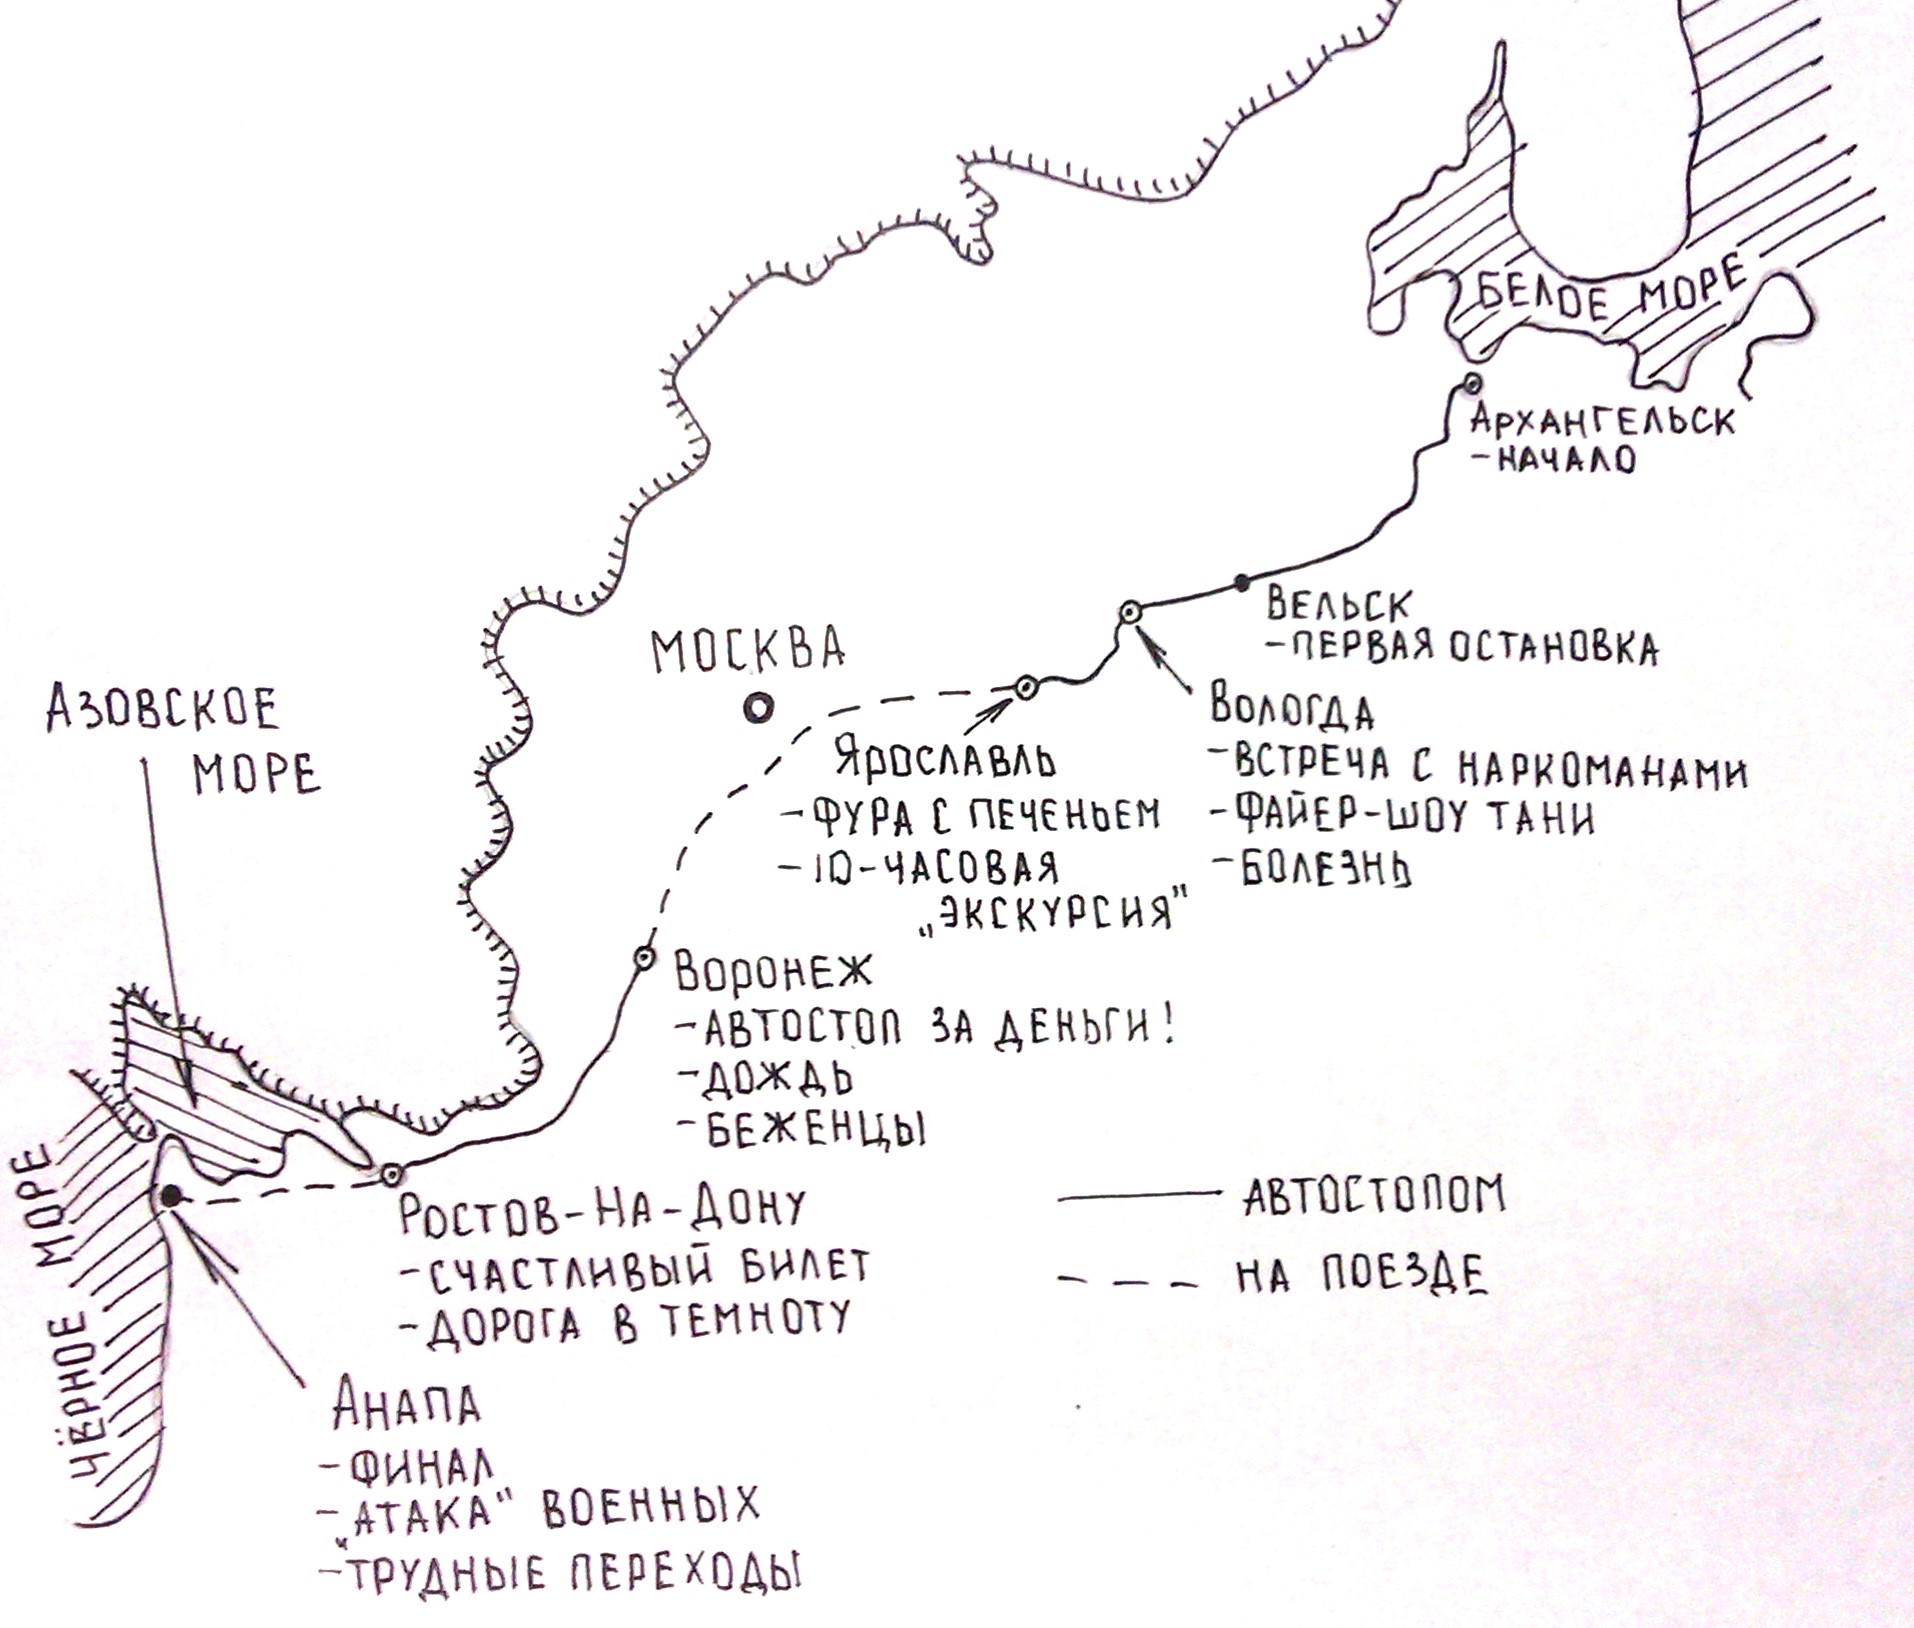 БЕЛОЕ МОРЕ
АРХАНГЕЛЬСК
-НАЧАЛО
ВЕЛЬСК
-ПЕРВАЯ ОСТАНОВКА
МОСКВА
ВОЛОГДА
-ВСТРЕЧА С НАРКОМАНАМИ
-ФАЙЕР-ШОУ ТАНИ
-БОЛЕЗНЬ
ЯРОСЛАВЛЬ
-ФУРА С ПЕЧЕНЬЕМ
-10-ЧАСОВАЯ
„ЭКСКУРСИЯ"
АЗОВСКОЕ
МОРЕ
ВОРОНЕЖ
-АВТОСТОП ЗА ДЕНЬГИ!
-ДОЖДЬ
-БЕЖЕНЦЫ
ЧЁРНОЕ МОРЕ
РОСТОВ-НА-ДОНУ
-СЧАСТЛИВЫЙ БИЛЕТ
-ДОРОГА В ТЕМНОТУ
АВТОСТОПОМ
НА ПОЕЗДЕ
АНАПА
-ФИНАЛ
-„АТАКА" ВОЕННЫХ
-ТРУДНЫЕ ПЕРЕХОДЫ